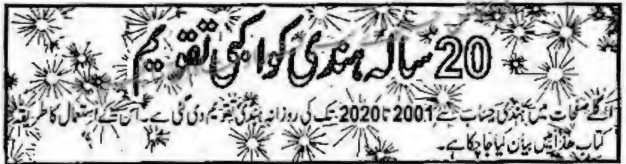 20 سالہ ھندی کواکبی تقویم
اگلے صفحات میں ہندی حساب سے 2001 تا 2020 تک کی روزانہ ہندی تقویم دی گئی ہے۔ ان کے استعمال کا طریقہ
کتاب ھذا میں بیان کیا جا چکا ہے۔